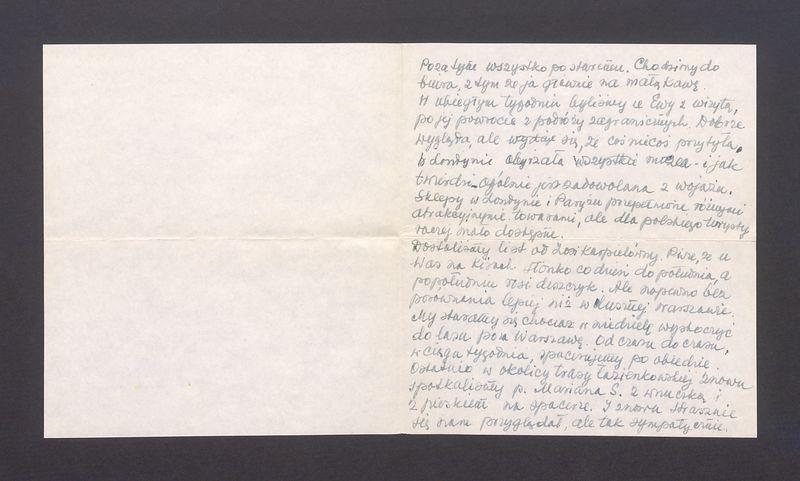 Poza tym wszystko po staremu. Chodzimy do
biura, z tym że ja głównie na małą kawę.
W ubiegłym tygodniu byliśmy u Ewy z wizytą,
po jej powrocie z podróży zagranicznych. Dobrze
wygląda, ale wydaje się, że coś niecoś przytyła.
W Londynie obejrzała wszystkie muzea - i jak
twierdzi - ogólnie jest zadowolona z wojażu.
Sklepy w Londynie i Paryżu przepełnione różnymi
atrakcyjnymi towarami, ale dla polskiego turysty
raczej mało dostępne.
Dostaliśmy list od Zosi Karpielówny. Pisze, że u
Was na Kirach słonko co dzień do południa, a
popołudniu rosi deszczyk. Ale napewno bez
porównania lepiej niż w dusznej Warszawie.
My staramy się chociaż w niedzielę wyskoczyć
do lasu poza Warszawę. Od czasu do czasu,
w ciągu tygodnia, spacerujemy po obiedzie.
Ostatnio w okolicy trasy Łazienkowskiej znowu
spotkaliśmy p. Mariana S. z wnuczką i
z pieskiem na spacerze. I znowu strasznie
się nam przyglądał, ale tak sympatycznie.